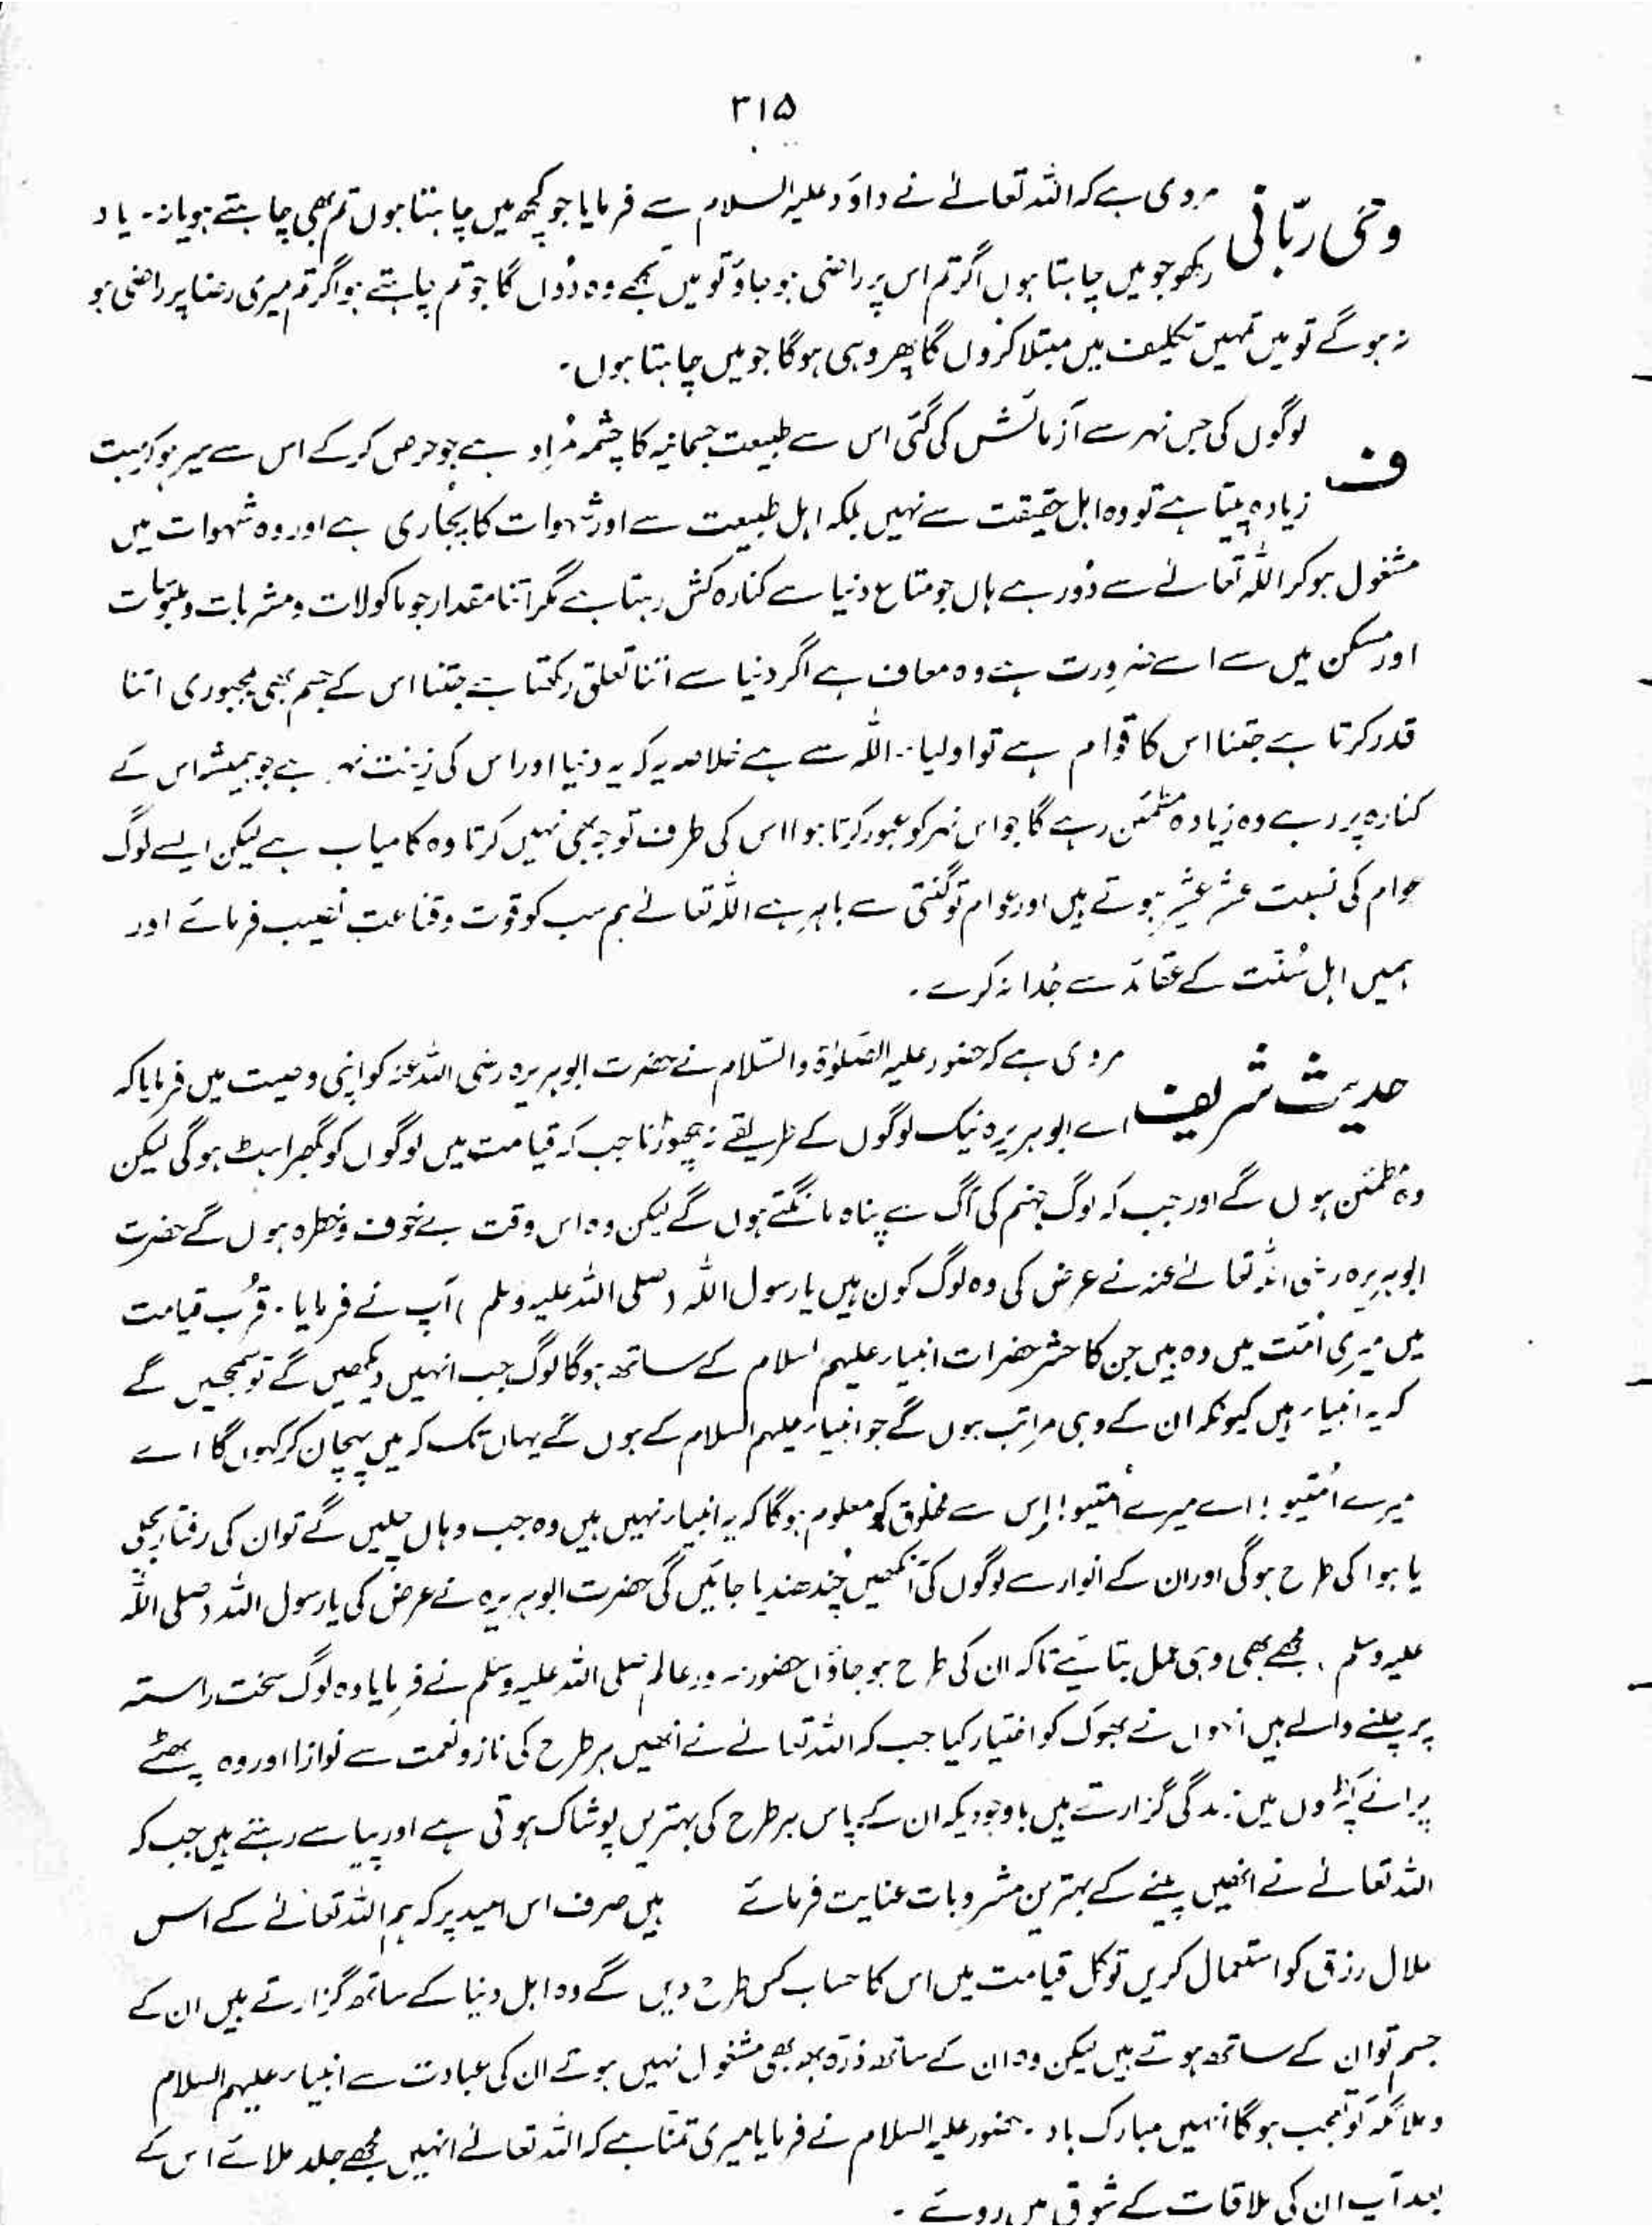 ۳۱۵
وحی ربّانی مروی ہے کہ اللہ تعالےٰ نے داؤد علیہ السلام سے فرمایا جو کچھ میں چاہتا ہوں تم بھی چاہتے ہو یا نہ۔ یاد
رکھو جو میں چاہتا ہوں اگر تم اس پر راضی ہو جاؤ تو میں تجھے وہ دُوں گا جو تم چاہتے ہو اگر تم میری رضا پر راضی ہو
نہ ہو گے تو میں تمہیں تکلیف میں مبتلا کروں گا پھر وہی ہو گا جو میں چاہتا ہوں۔
ف لوگوں کی جس نہر سے آزمائش کی گئی اس سے طبیعت جسمانیہ کا چشمہ مُراد ہے جو حرص کر کے اس سے سیر ہو کر بہت
زیادہ پیتا ہے تو وہ اہل حقیقت سے نہیں بلکہ اہل طبیعت سے اور شہوات کا پجاری ہے اور وہ شہوات میں
مشغول ہو کر اللہ تعالےٰ سے دُور ہے ہاں جو متاع دنیا سے کنارہ کش رہتا ہے مگر اتنا مقدار جو ماکولات و مشربات و ملبوسات
اور مسکن میں سے اسے ضرورت ہے وہ معاف ہے اگر دنیا سے اتنا تعلق رکھتا ہے جتنا اس کے جسم بھی مجبوری اتنا
قدر کرتا ہے جتنا اس کا قوام ہے تو اولیاء اللہ سے ہے خلاصہ یہ کہ یہ دنیا اور اس کی زینت نہر ہے جو ہمیشہ اس کے
کنارہ پر رہے وہ زیادہ مطمئن رہے گا جو اس نہر کو عبور کرتا ہوا اس کی طرف توجہ بھی نہیں کرتا وہ کامیاب ہے لیکن ایسے لوگ
عوام کی نسبت عشر عشیر ہوتے ہیں اور عوام تو گنتی سے باہر ہے اللہ تعالےٰ ہم سب کو قوت و قناعت نصیب فرمائے اور
ہمیں اہل سُنّت کے عقائد سے جُدا نہ کرے۔
حدیث شریف مروی ہے کہ حضور علیہ الصّلوٰۃ والسّلام نے حضرت ابوہریرہ رضی اللہ عنہ کو اپنی وصیت میں فرمایا کہ
اے ابوہریرہ نیک لوگوں کے طریقے نہ چھوڑنا جب کہ قیامت میں لوگوں کو گھبراہٹ ہو گی لیکن
وہ مطمئن ہوں گے اور جب کہ لوگ جہنم کی آگ سے پناہ مانگتے ہوں گے لیکن وہ اس وقت بے خوف و خطرہ ہوں گے حضرت
ابوہریرہ رضی اللہ تعالےٰ عنہ نے عرض کی وہ لوگ کون ہیں یا رسول اللہ (صلی اللہ علیہ وسلم) آپ نے فرمایا۔ قُرب قیامت
میں میری اُمّت میں وہ ہیں جن کا حشر حضرات انبیاء علیہم السلام کے ساتھ ہو گا لوگ جب انہیں دیکھیں گے تو سمجھیں گے
کہ یہ انبیاء ہیں کیونکہ ان کے وہی مراتب ہوں گے جو انبیاء علیہم السلام کے ہوں گے یہاں تک کہ میں پہچان کر کہوں گا اے
میرے اُمتیو! اے میرے اُمتیو! اِس سے مخلوق کو معلوم ہو گا کہ یہ انبیاء نہیں ہیں وہ جب وہاں چلیں گے تو ان کی رفتار بجلی
یا ہوا کی طرح ہو گی اور ان کے انوار سے لوگوں کی آنکھیں چُندھندیا جائیں گی حضرت ابوہریرہ نے عرض کی یا رسول اللہ (صلی اللہ
علیہ وسلم) مجھے بھی وہی عمل بتائیے تاکہ ان کی طرح ہو جاؤں حضور سرور عالم صلی اللہ علیہ وسلم نے فرمایا وہ لوگ سخت راستہ
پر چلنے والے ہیں انہوں نے بھوک کو اختیار کیا جب کہ اللہ تعالےٰ نے انھیں ہر طرح کی ناز و نعمت سے نوازا اور وہ پھٹے
پرانے کپڑوں میں زندگی گزارتے ہیں باوجودیکہ ان کے پاس ہر طرح کی بہترین پوشاک ہوتی ہے اور پیاسے رہتے ہیں جب کہ
اللہ تعالےٰ نے انھیں پینے کے بہترین مشروبات عنایت فرمائے ہیں صرف اس امید پر کہ ہم اللہ تعالےٰ کے اس
حلال رزق کو استعمال کریں تو کل قیامت میں اس کا حساب کس طرح دیں گے وہ اہل دنیا کے ساتھ گزارتے ہیں ان کے
جسم تو ان کے ساتھ ہوتے ہیں لیکن وہ ان کے ساتھ ذرّہ بھر بھی مشغول نہیں ہوتے ان کی عبادت سے انبیاء علیہم السلام
و ملائکہ کو تعجب ہو گا انہیں مبارک باد۔ حضور علیہ السلام نے فرمایا میری تمنّا ہے کہ اللہ تعالےٰ انہیں مجھے جلد ملائے اس کے
بعد آپ ان کی ملاقات کے شوق میں روئے۔